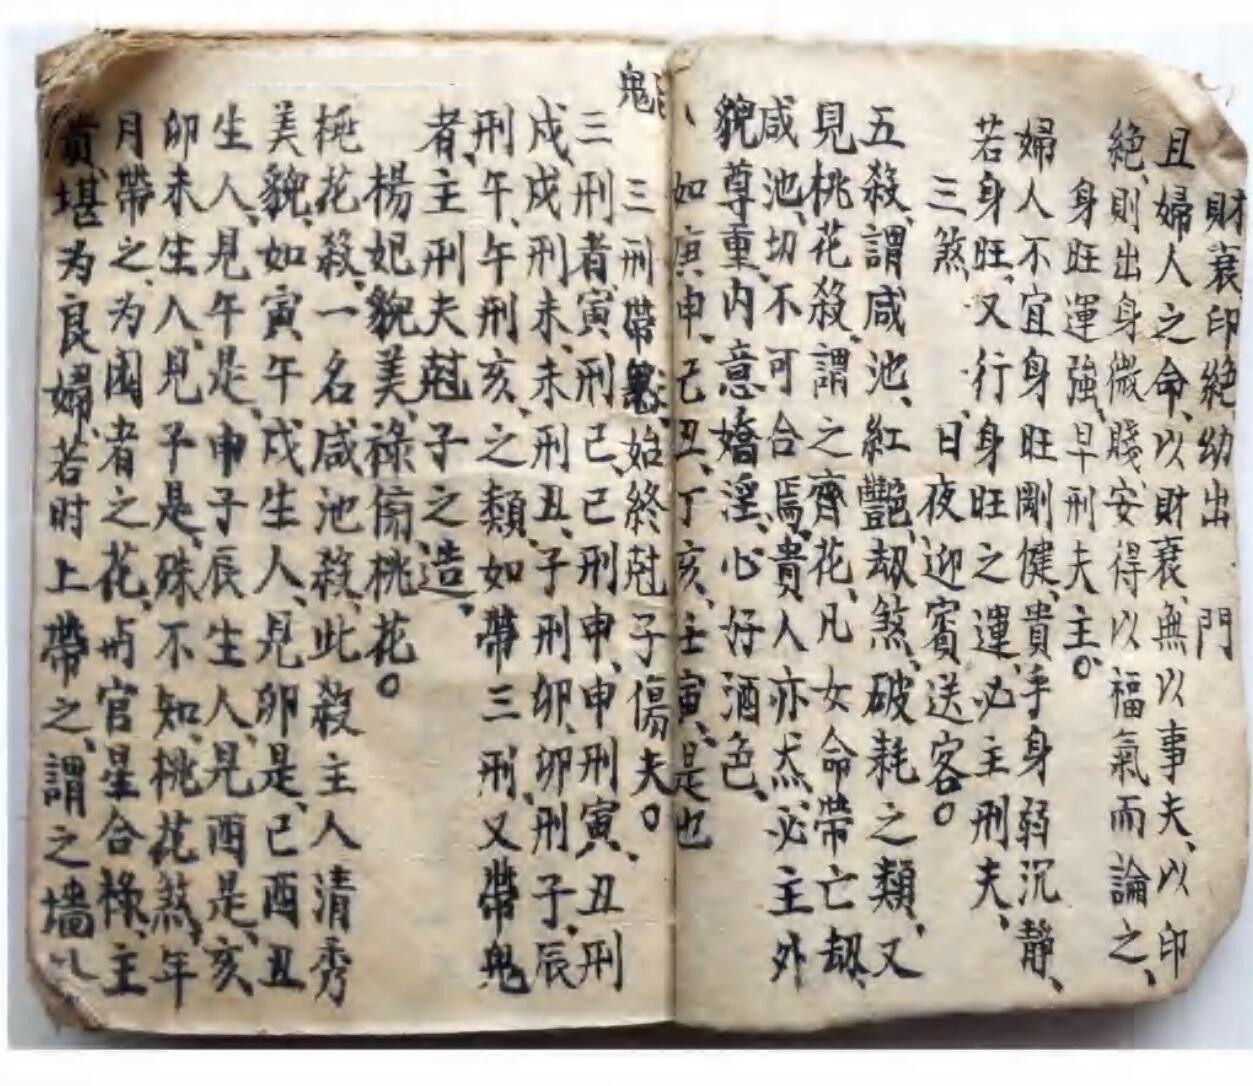 財衰印絶幼出　門
且婦人之命、以財衰、無以事夫、以印
絶、則出身微賤、安得以福氣而論之、
身旺運強、早刑夫主。
婦人不宜身旺剛健、貴乎身弱沉靜、
若身旺、又行身旺之運、必主刑夫、
三煞　日夜迎賓送客。
五殺、謂咸池、紅豔、劫煞、破耗之類、又
見桃花殺、謂之齊花、凡女命帶亡劫、
咸池、切不可合焉、貴人亦然、必主外
貌尊重、内意嬌淫、心好酒色、
如庚申、己丑、丁亥、壬寅、是也
鬼
三刑帶鬼、始終尅子傷夫。
三刑者、寅刑巳、巳刑申、申刑寅、丑刑
戌、戌刑未、未刑丑、子刑卯、卯刑子、辰
刑午、午刑亥、之類、如帶三刑、又帶鬼
者、主刑夫尅子之造、
楊妃貌美、祿偷桃花。
桃花殺、一名咸池殺、此殺主人清秀
美貌、如寅午戌生人、見卯是、巳酉丑
生人、見午是、申子辰生人、見酉是、亥
卯未生人、見子是、殊不知、桃花煞、年
月帶之、为園者之花、与官星合祿、主
貴、堪为良婦、若时上帶之、謂之墻以